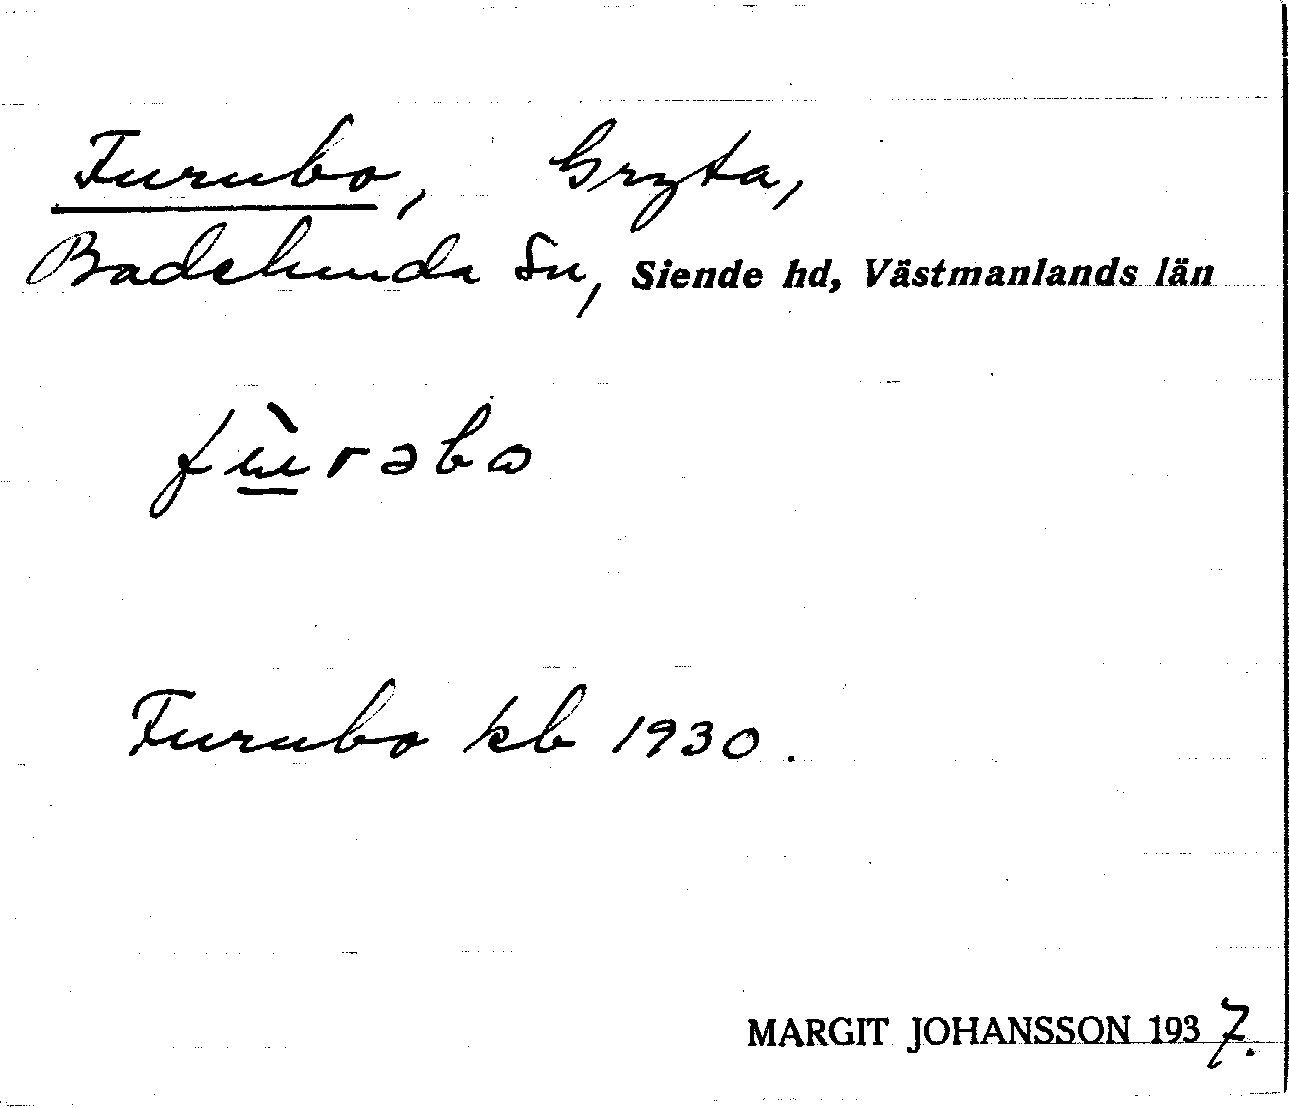 Furubo, Gryta,
Badelunda Sn, Siende hd, Västmanlands län
fù̲rəbo
Furubo kb 1930.
MARGIT JOHANSSON 1937.